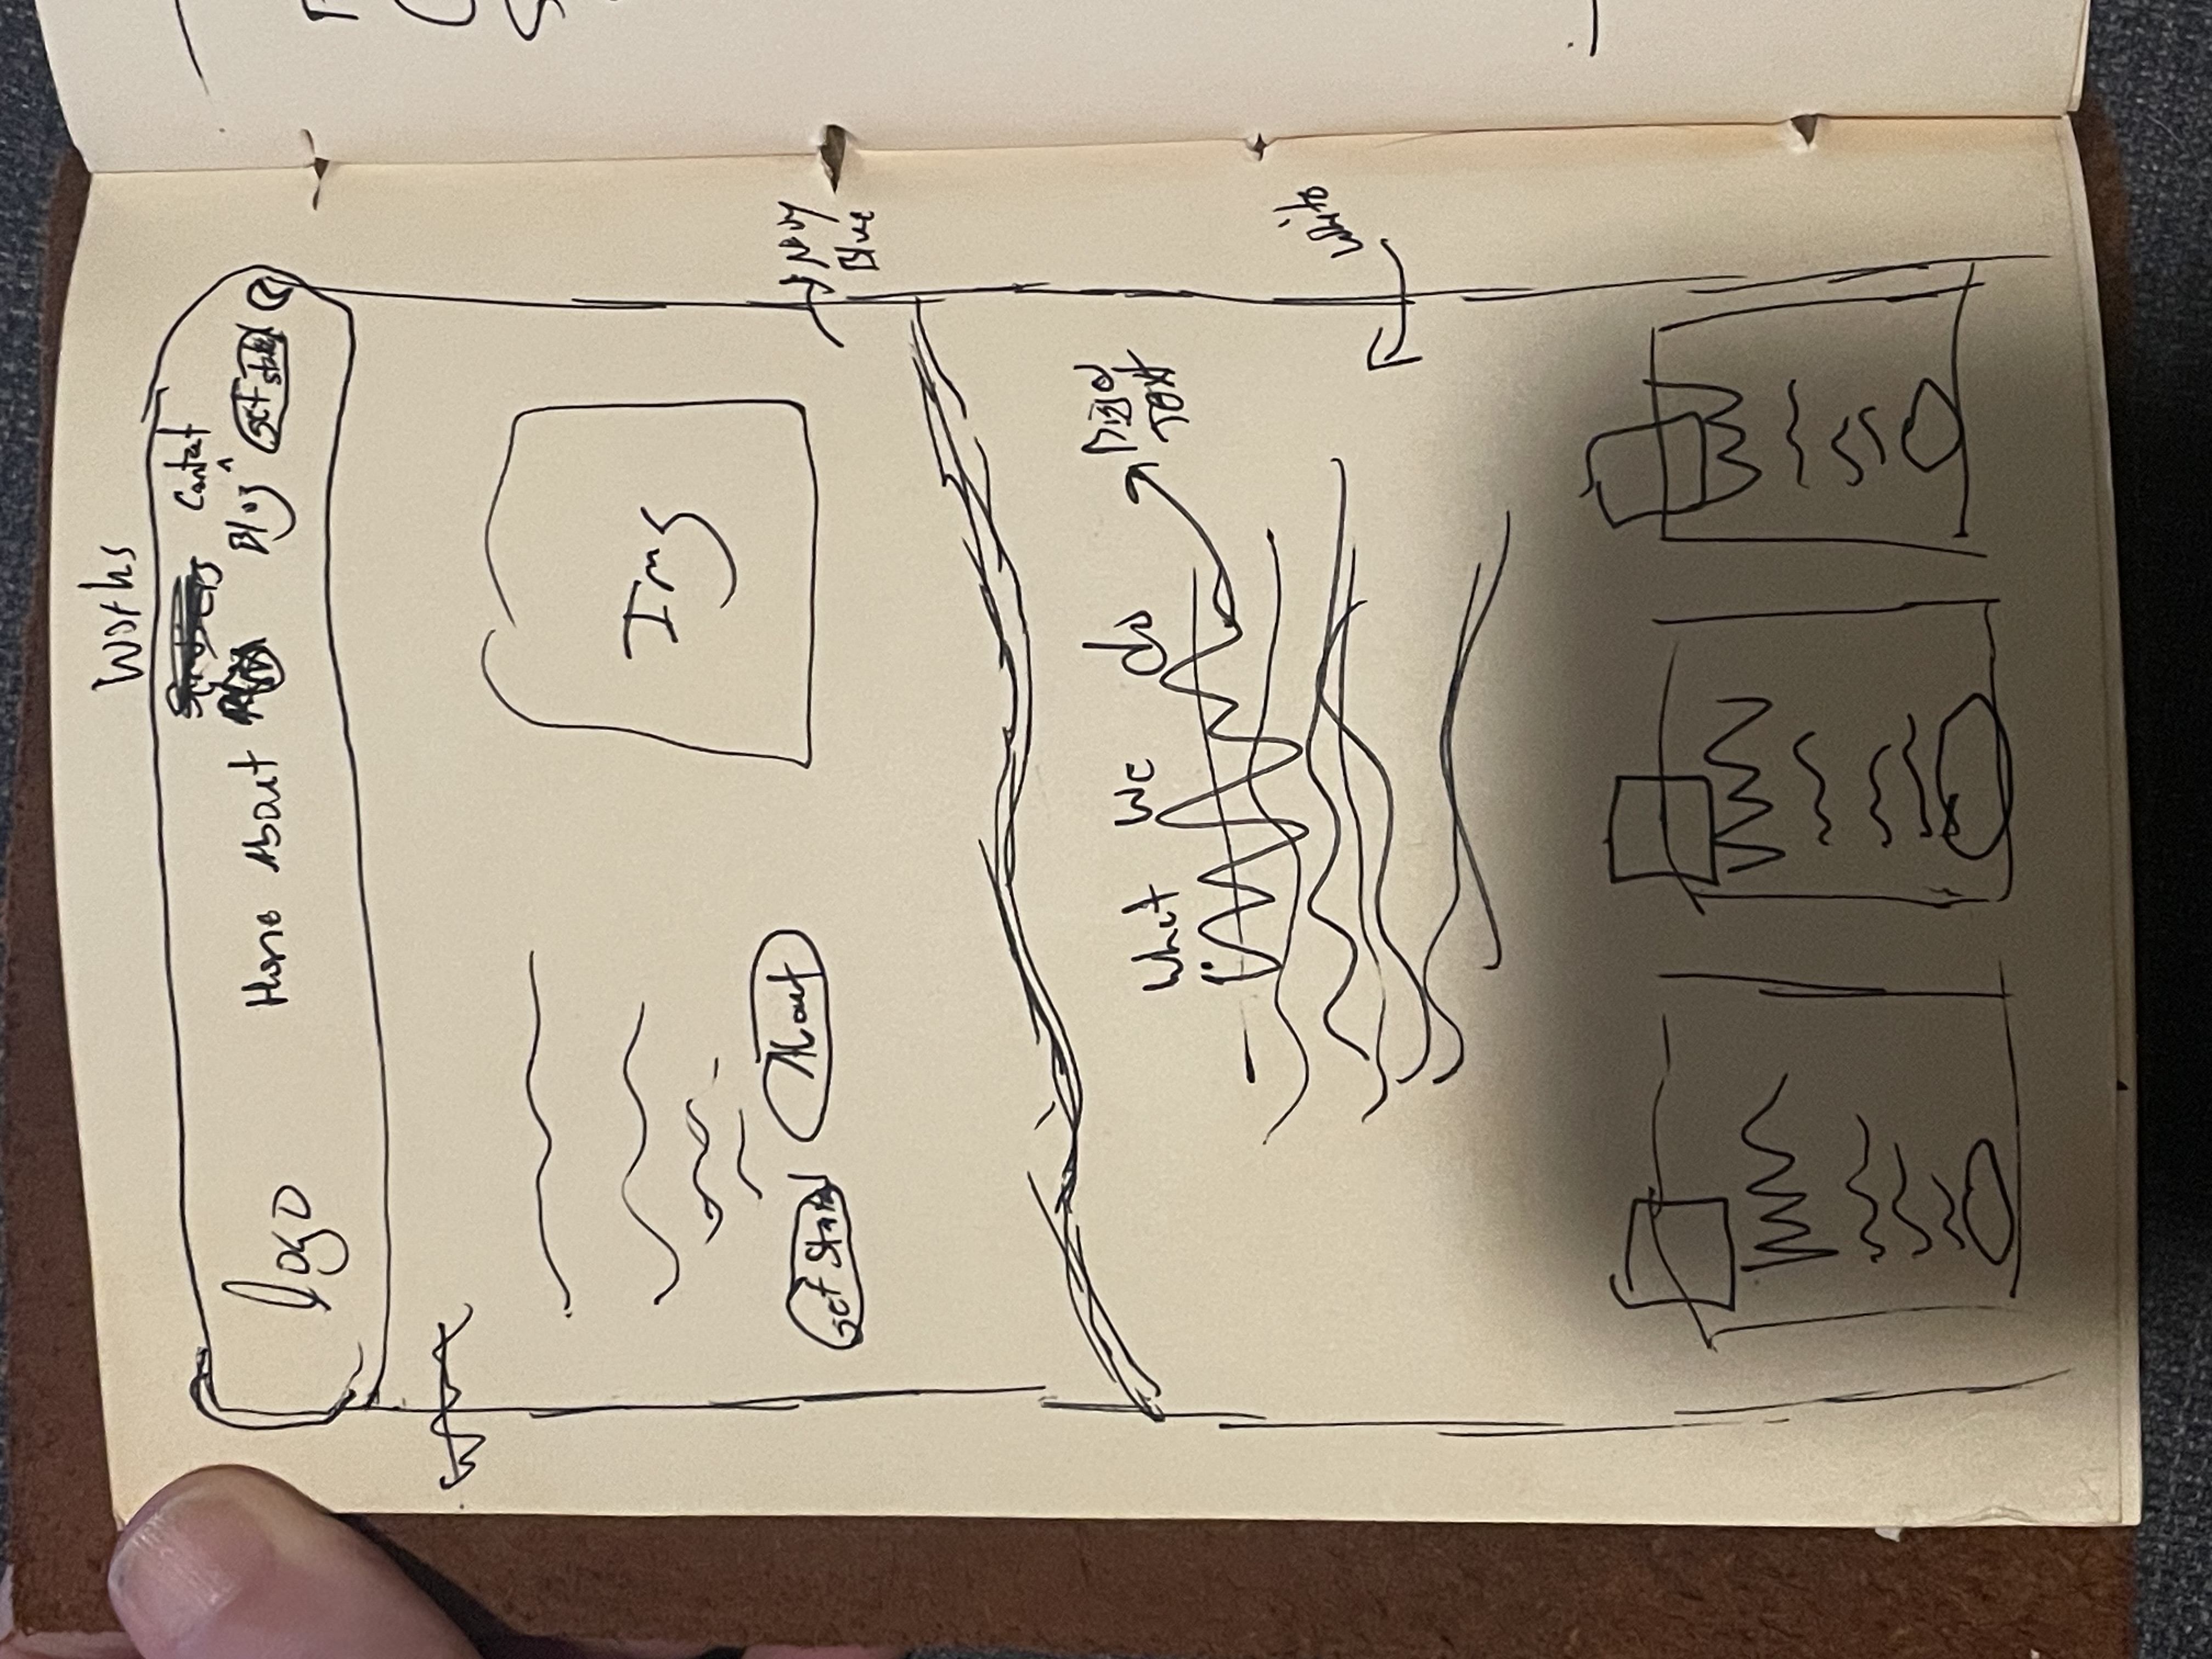 Works
Contact
logo Home About Blog ^ Get started
Img
Get Started About
Navy
Blue
What We do
Text
White